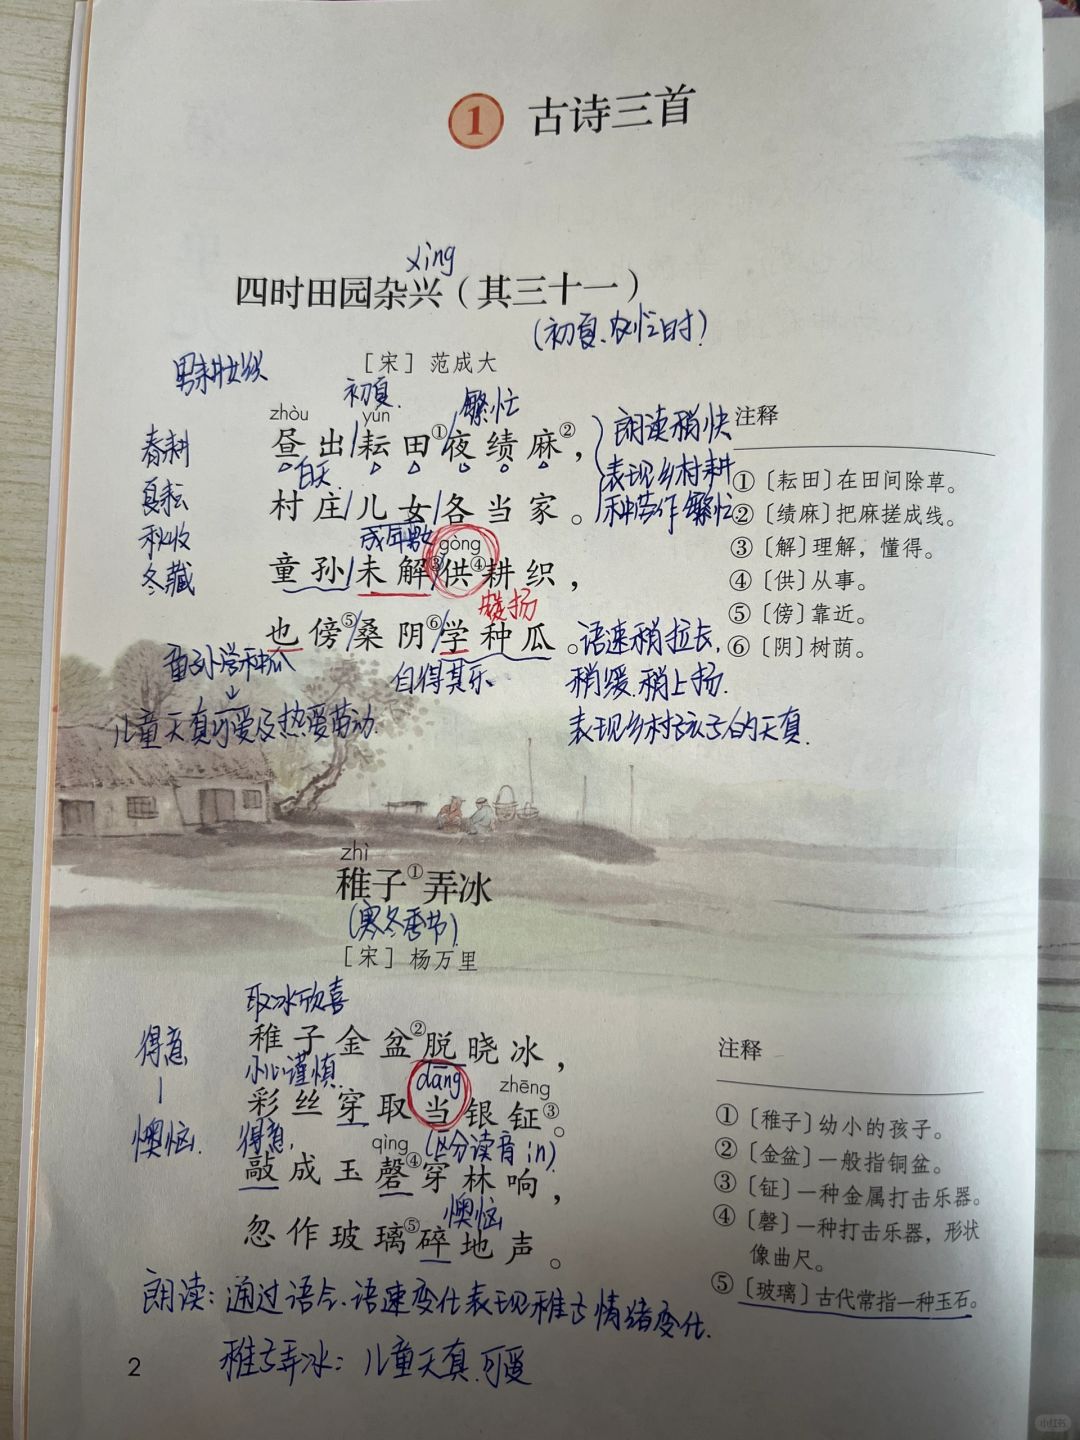 1 古诗三首
xìng
四时田园杂兴（其三十一）
（初夏、农忙时）
［宋］范成大
男耕女织
初夏
繁忙
zhòu yún
昼出/耘田①/夜绩麻②，
白天
村庄/儿女/各当家。
成年男女
gòng
童孙/未解③/供④耕织，
上扬
也傍⑤/桑阴⑥/学种瓜。
自得其乐
春耕
夏耘
秋收
冬藏
朗读稍快
表现乡村耕
种劳作繁忙
语速稍拉长，
稍缓、稍上扬.
表现乡村孩子的天真.
童孙学种瓜
↓
儿童天真可爱及热爱劳动.
注释
①〔耘田〕在田间除草。
②〔绩麻〕把麻搓成线。
③〔解〕理解，懂得。
④〔供〕从事。
⑤〔傍〕靠近。
⑥〔阴〕树荫。
zhì
稚子①弄冰
（寒冬季节）
［宋］杨万里
取冰欣喜
稚子金盆②脱晓冰，
小心谨慎.
dāng zhēng
彩丝穿取当银钲③。
得意，
qìng （区分读音in）
敲成玉磬④穿林响，
懊恼
忽作玻璃⑤碎地声。
得意
|
懊恼.
朗读：通过语气、语速变化表现稚子情绪变化.
稚子弄冰：儿童天真、可爱
注释
①〔稚子〕幼小的孩子。
②〔金盆〕一般指铜盆。
③〔钲〕一种金属打击乐器。
④〔磬〕一种打击乐器，形状
像曲尺。
⑤〔玻璃〕古代常指一种玉石。
2
小红书